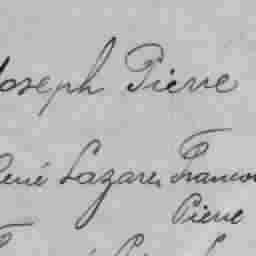 Joseph Pierre
René Lazare, Francois
Pierre